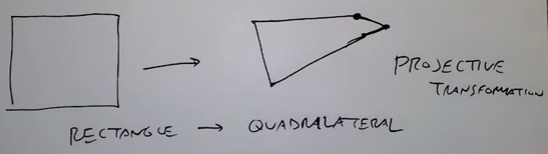 PROJECTIVE
TRANSFORMATION
RECTANGLE → QUADRALATERAL